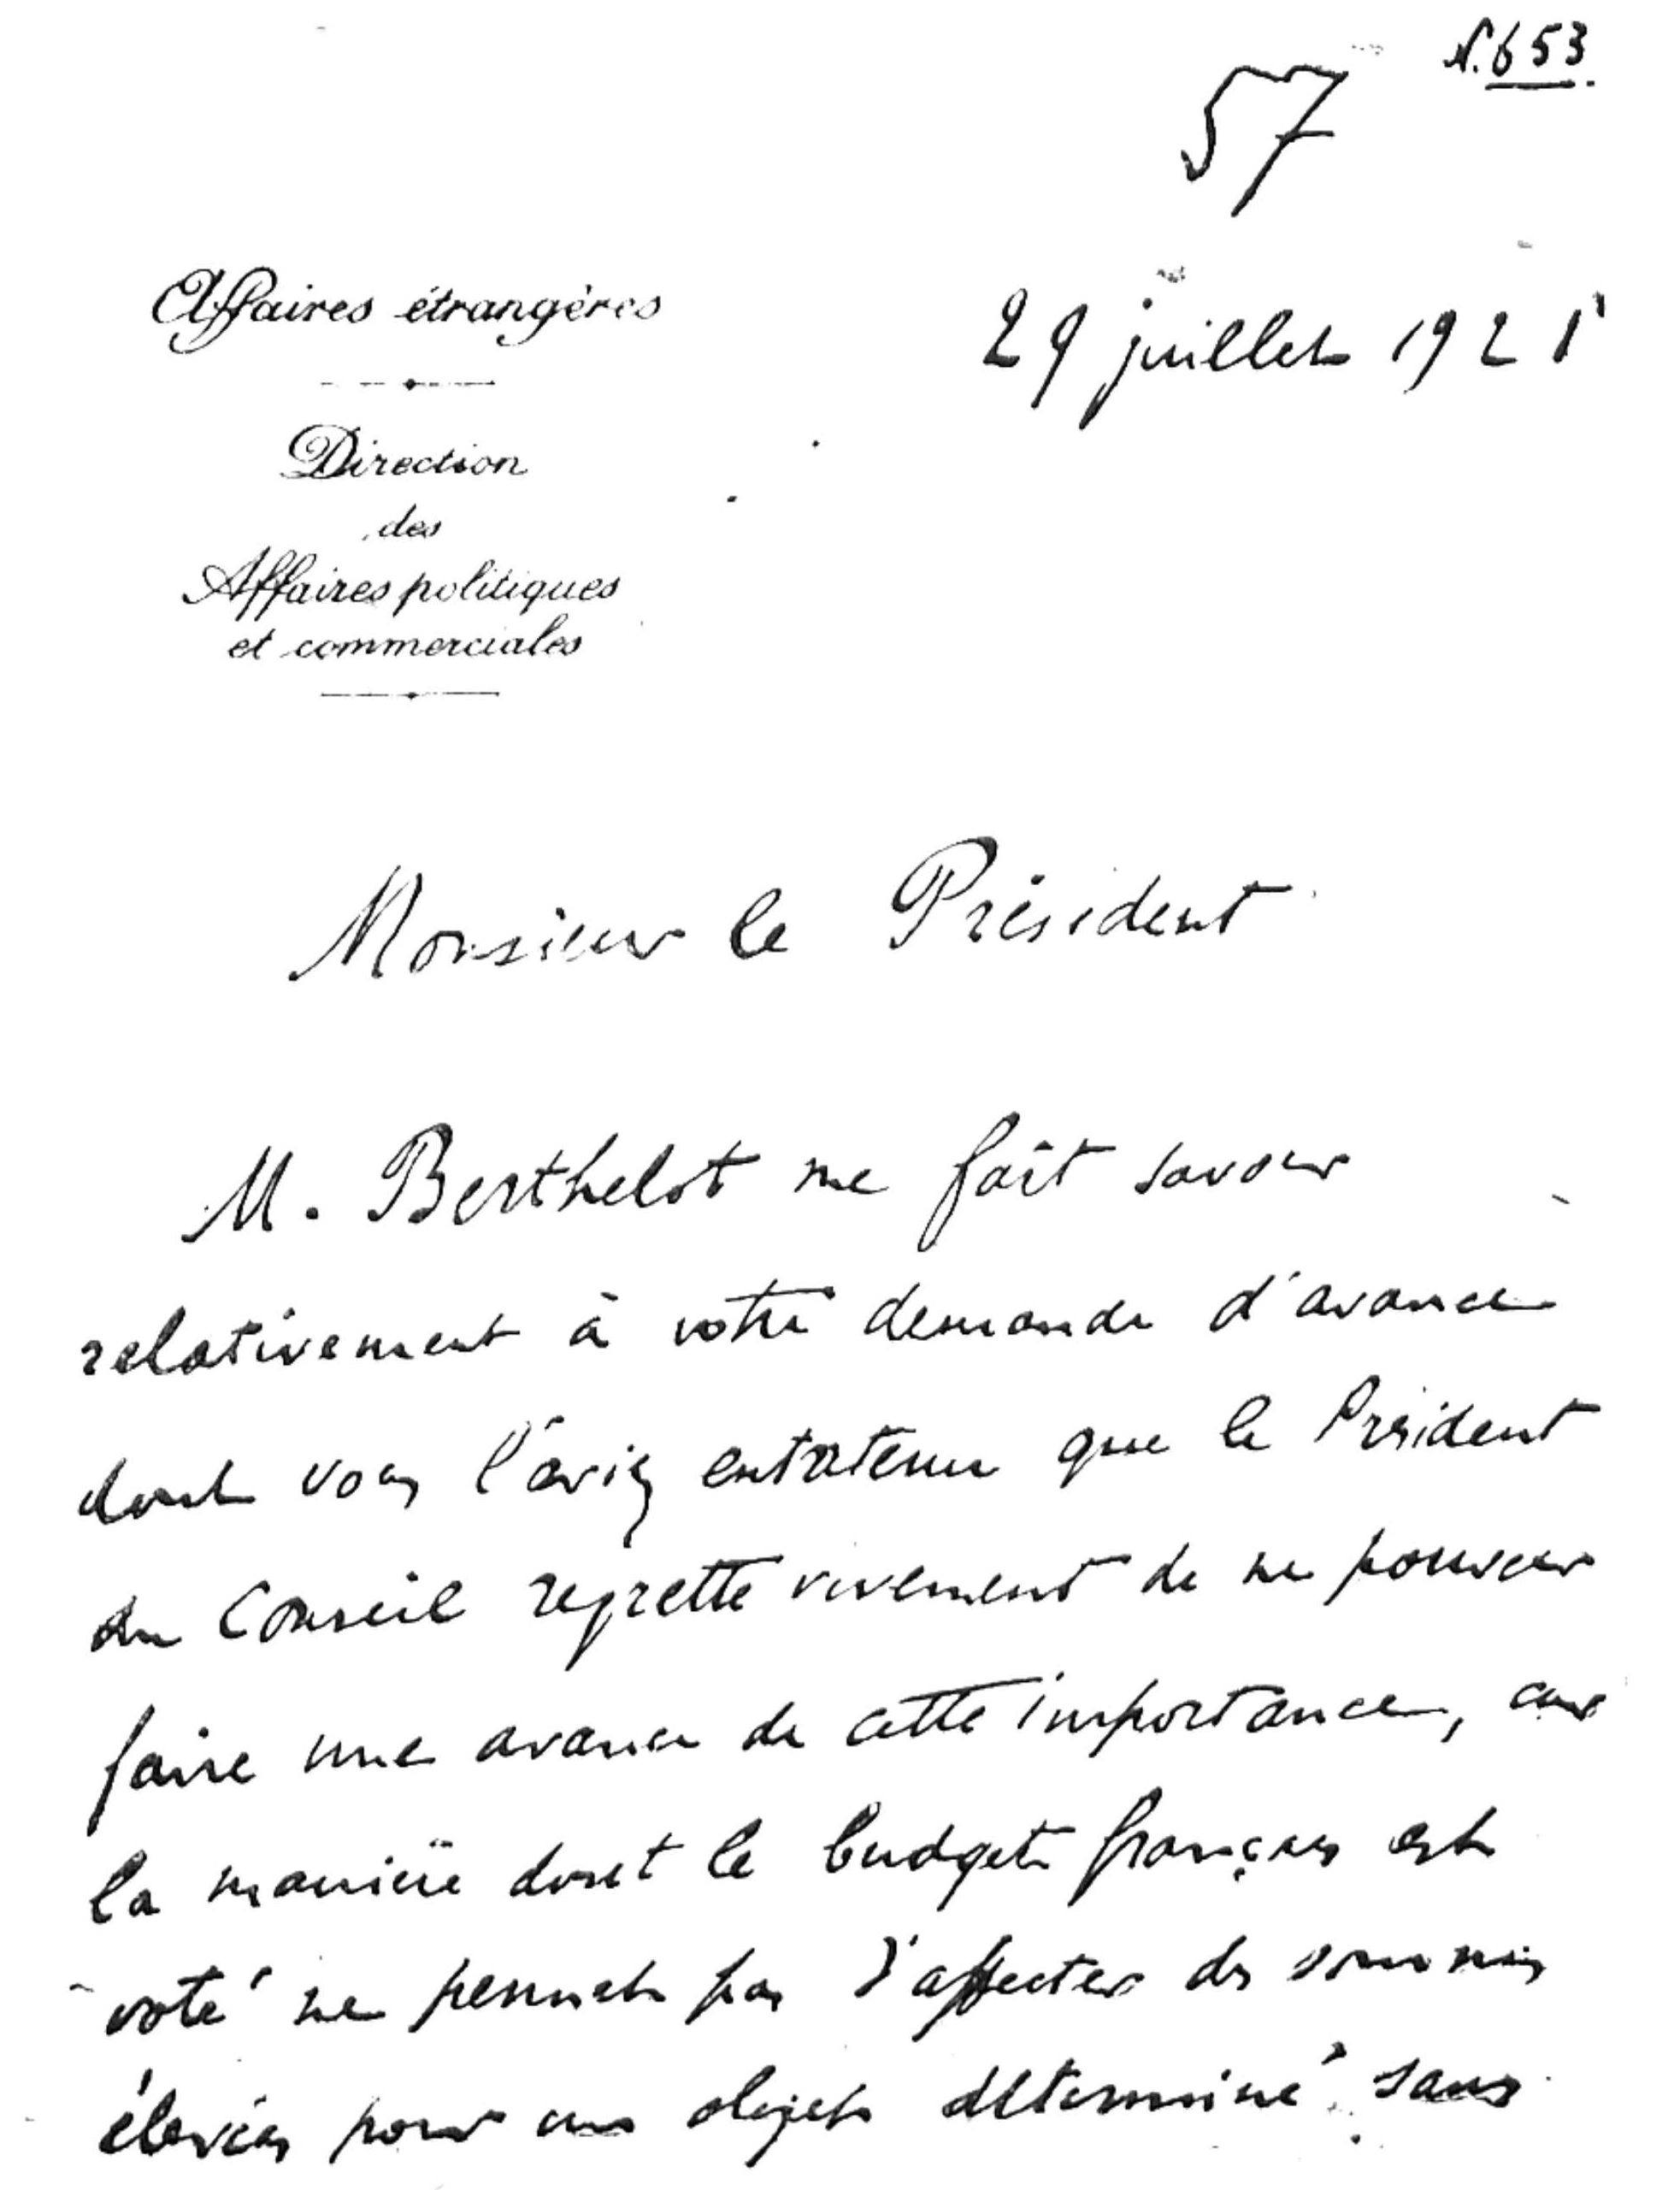 N. 653.
57
Affaires étrangères
29 juillet 1921
Direction
des
Affaires politiques
et commerciales
Monsieur le Président
M. Berthelot me fait savoir
relativement à votre demande d'avance
dont vous l'aviez entretenu que le Président
du Conseil regrette vivement de ne pouvoir
faire une avance de cette importance, car
la manière dont le budget français est
voté ne permet pas d'affecter des sommes
élevées pour un objet déterminé sans